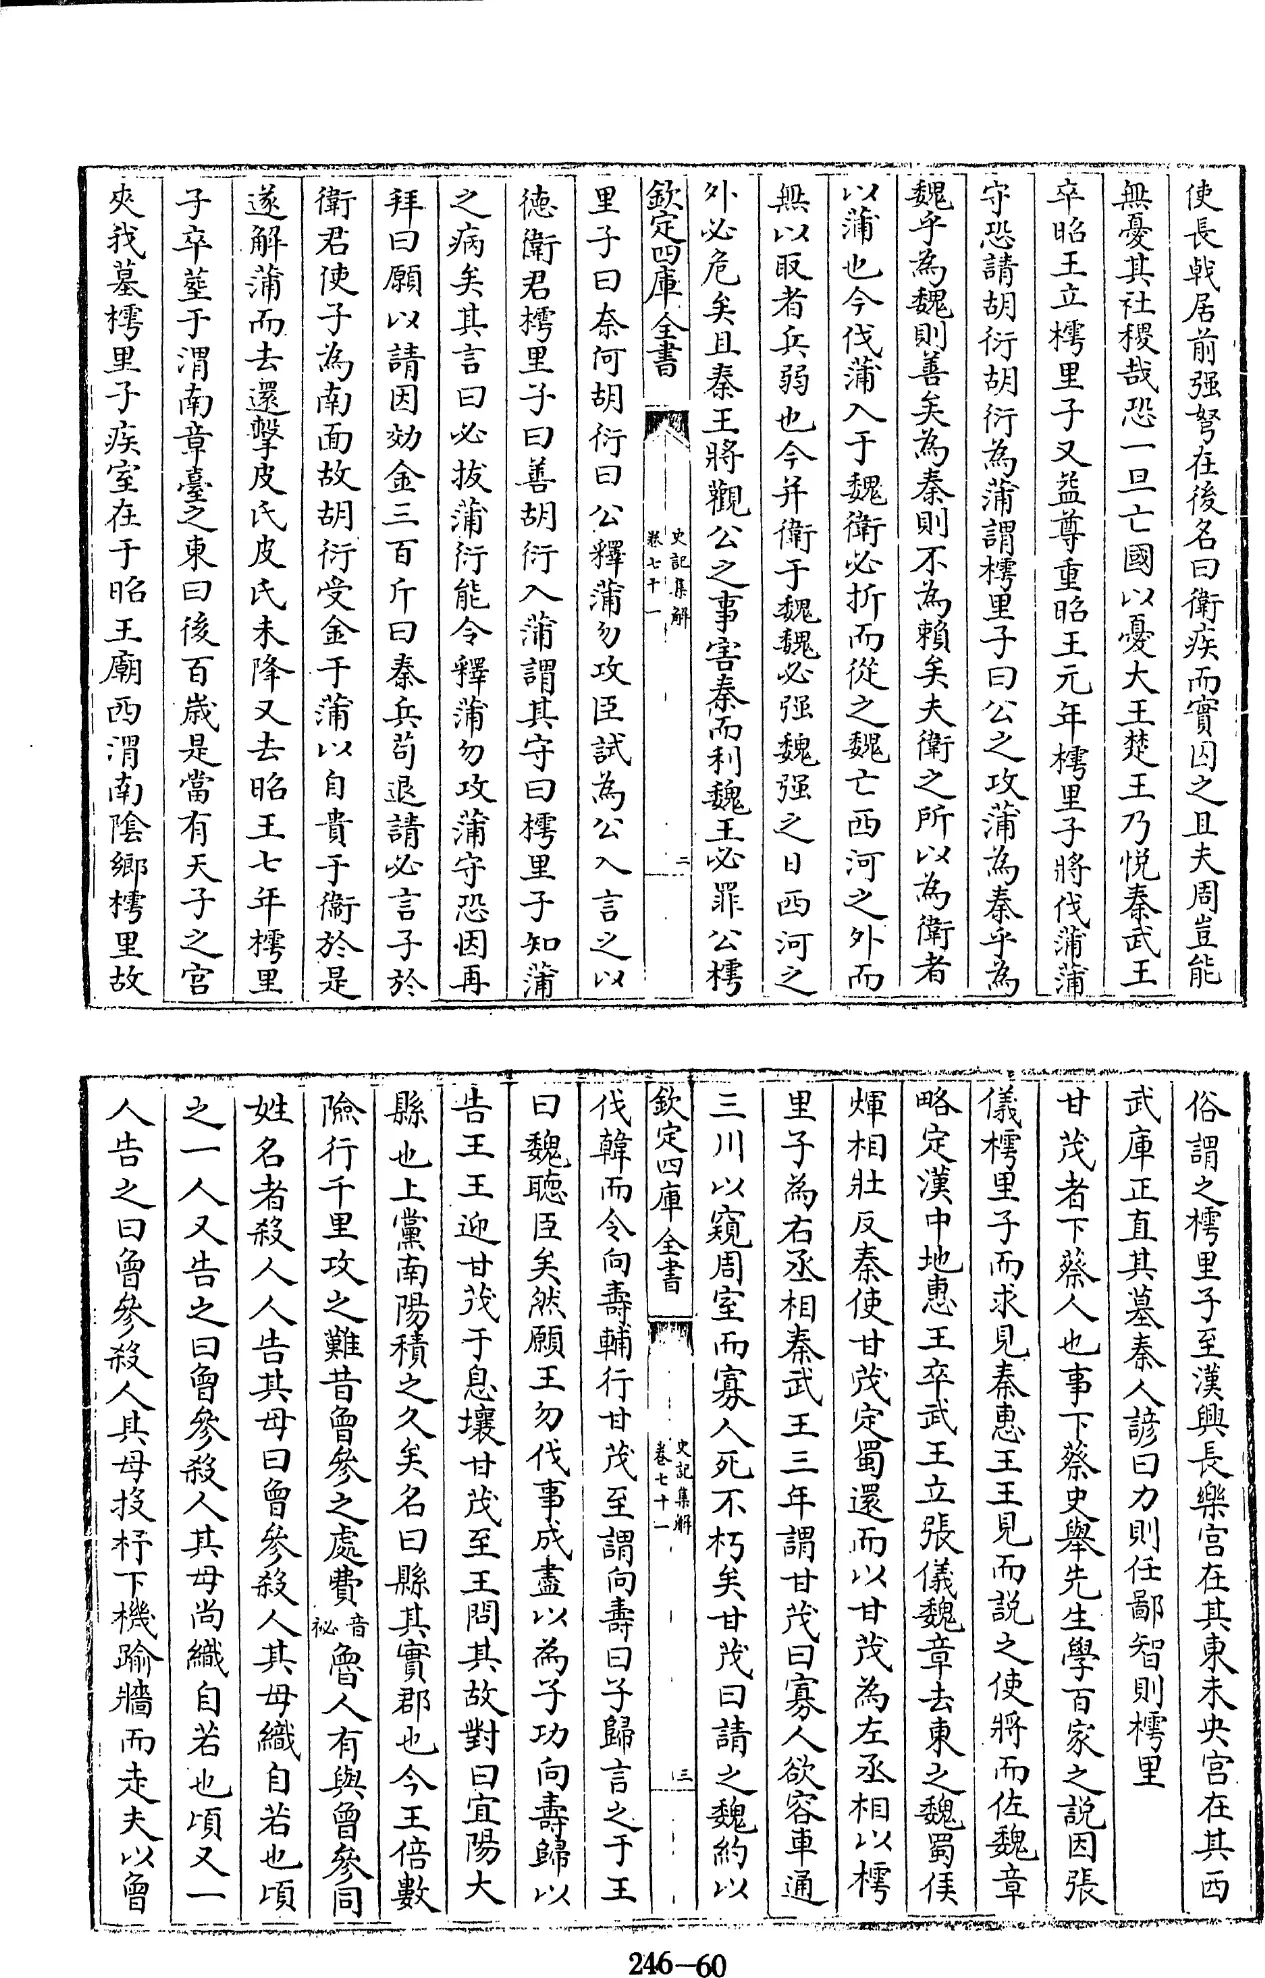 使長戟居前强弩在後名曰衛疾而實囚之且夫周豈能
無憂其社稷哉恐一旦亡國以憂大王楚王乃悦秦武王
卒昭王立樗里子又益尊重昭王元年樗里子將伐蒲蒲
守恐請胡衍胡衍為蒲謂樗里子曰公之攻蒲為秦乎為
魏乎為魏則善矣為秦則不為賴矣夫衛之所以為衛者
以蒲也今伐蒲入于魏衛必折而從之魏亡西河之外而
無以取者兵弱也今并衛于魏魏必强魏强之日西河之
外必危矣且秦王將觀公之事害秦而利魏王必罪公樗
欽定四庫全書
史記集解
卷七十一
二
里子曰奈何胡衍曰公釋蒲勿攻臣試為公入言之以
德衛君樗里子曰善胡衍入蒲謂其守曰樗里子知蒲
之病矣其言曰必拔蒲衍能令釋蒲勿攻蒲守恐因再
拜曰願以請因効金三百斤曰秦兵苟退請必言子於
衛君使子為南面故胡衍受金于蒲以自貴于衞於是
遂解蒲而去還擊皮氏皮氏未降又去昭王七年樗里
子卒塟于渭南章臺之東曰後百歲是當有天子之宮
夾我墓樗里子疾室在于昭王廟西渭南陰鄉樗里故
俗謂之樗里子至漢興長樂宮在其東未央宮在其西
武庫正直其墓秦人諺曰力則任鄙智則樗里
甘茂者下蔡人也事下蔡史舉先生學百家之說因張
儀樗里子而求見秦惠王王見而說之使將而佐魏章
略定漢中地惠王卒武王立張儀魏章去東之魏蜀侯
煇相壯反秦使甘茂定蜀還而以甘茂為左丞相以樗
里子為右丞相秦武王三年謂甘茂曰寡人欲容車通
三川以窺周室而寡人死不朽矣甘茂曰請之魏約以
欽定四庫全書
史記集解
卷七十一
三
伐韓而令向壽輔行甘茂至謂向壽曰子歸言之于王
曰魏聽臣矣然願王勿伐事成盡以為子功向壽歸以
告王王迎甘茂于息壤甘茂至王問其故對曰宜陽大
縣也上黨南陽積之久矣名曰縣其實郡也今王倍數
險行千里攻之難昔曾參之處費音祕魯人有與曾參同
姓名者殺人人告其母曰曾參殺人其母織自若也頃
之一人又告之曰曾參殺人其母尚織自若也頃又一
人告之曰曾參殺人其母投杼下機踰牆而走夫以曾
246—60